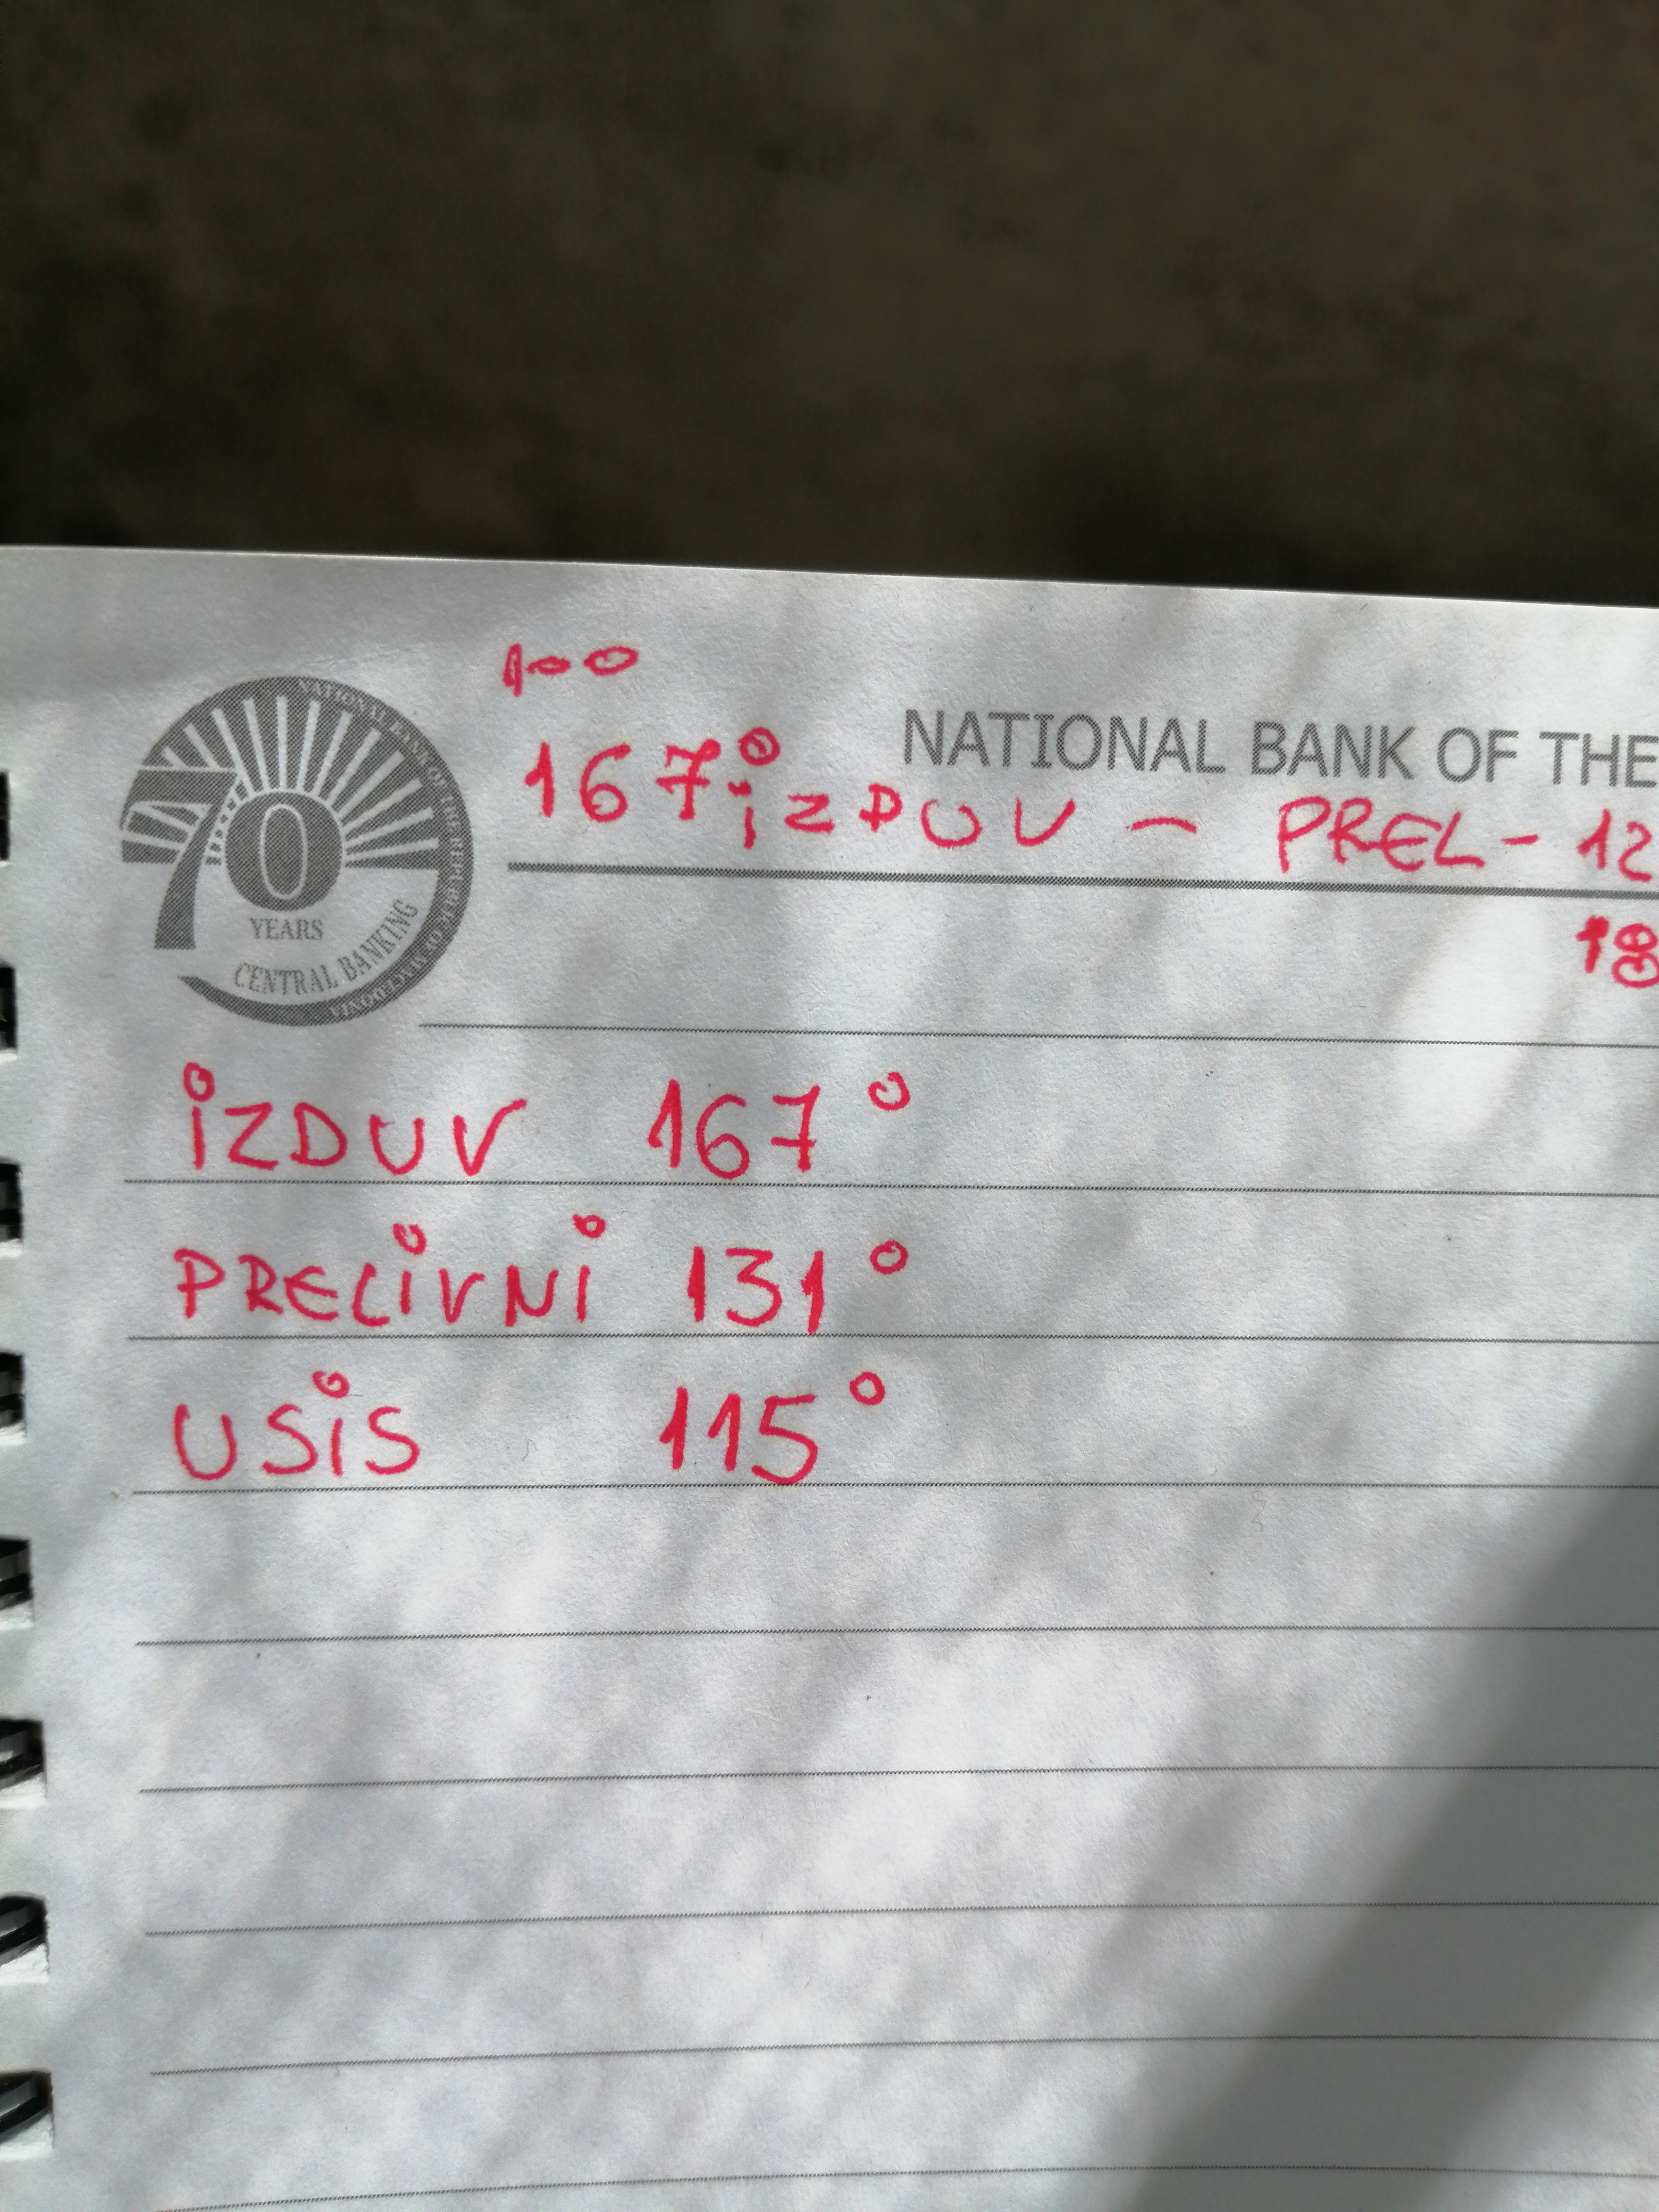 100
167° iZDUV - PREL - 12
NATIONAL BANK OF THE
18
70
YEARS
CENTRAL BANKING
NATIONAL BANK OF THE REPUBLIC OF MACEDONIA
iZDUV 167°
PRELiVNi 131°
USiS 115°